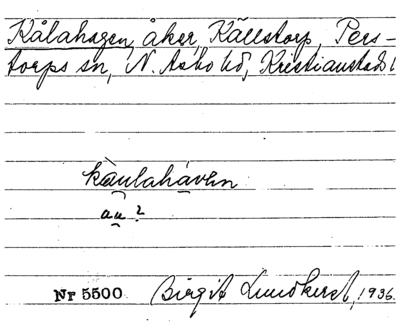 Kålahagen, åker, Källstorp, Pers-
torps sn, N. Åsbo hd, Kristianstads l
kàulahávən
au ?
Nr 5500 Birgit Lundkvist, 1936.